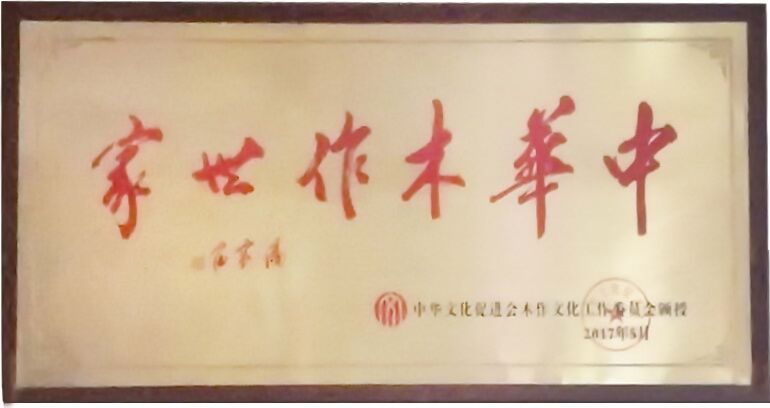 中華木作世家
中华文化促进会木作文化工作委员会颁授
2017年8月